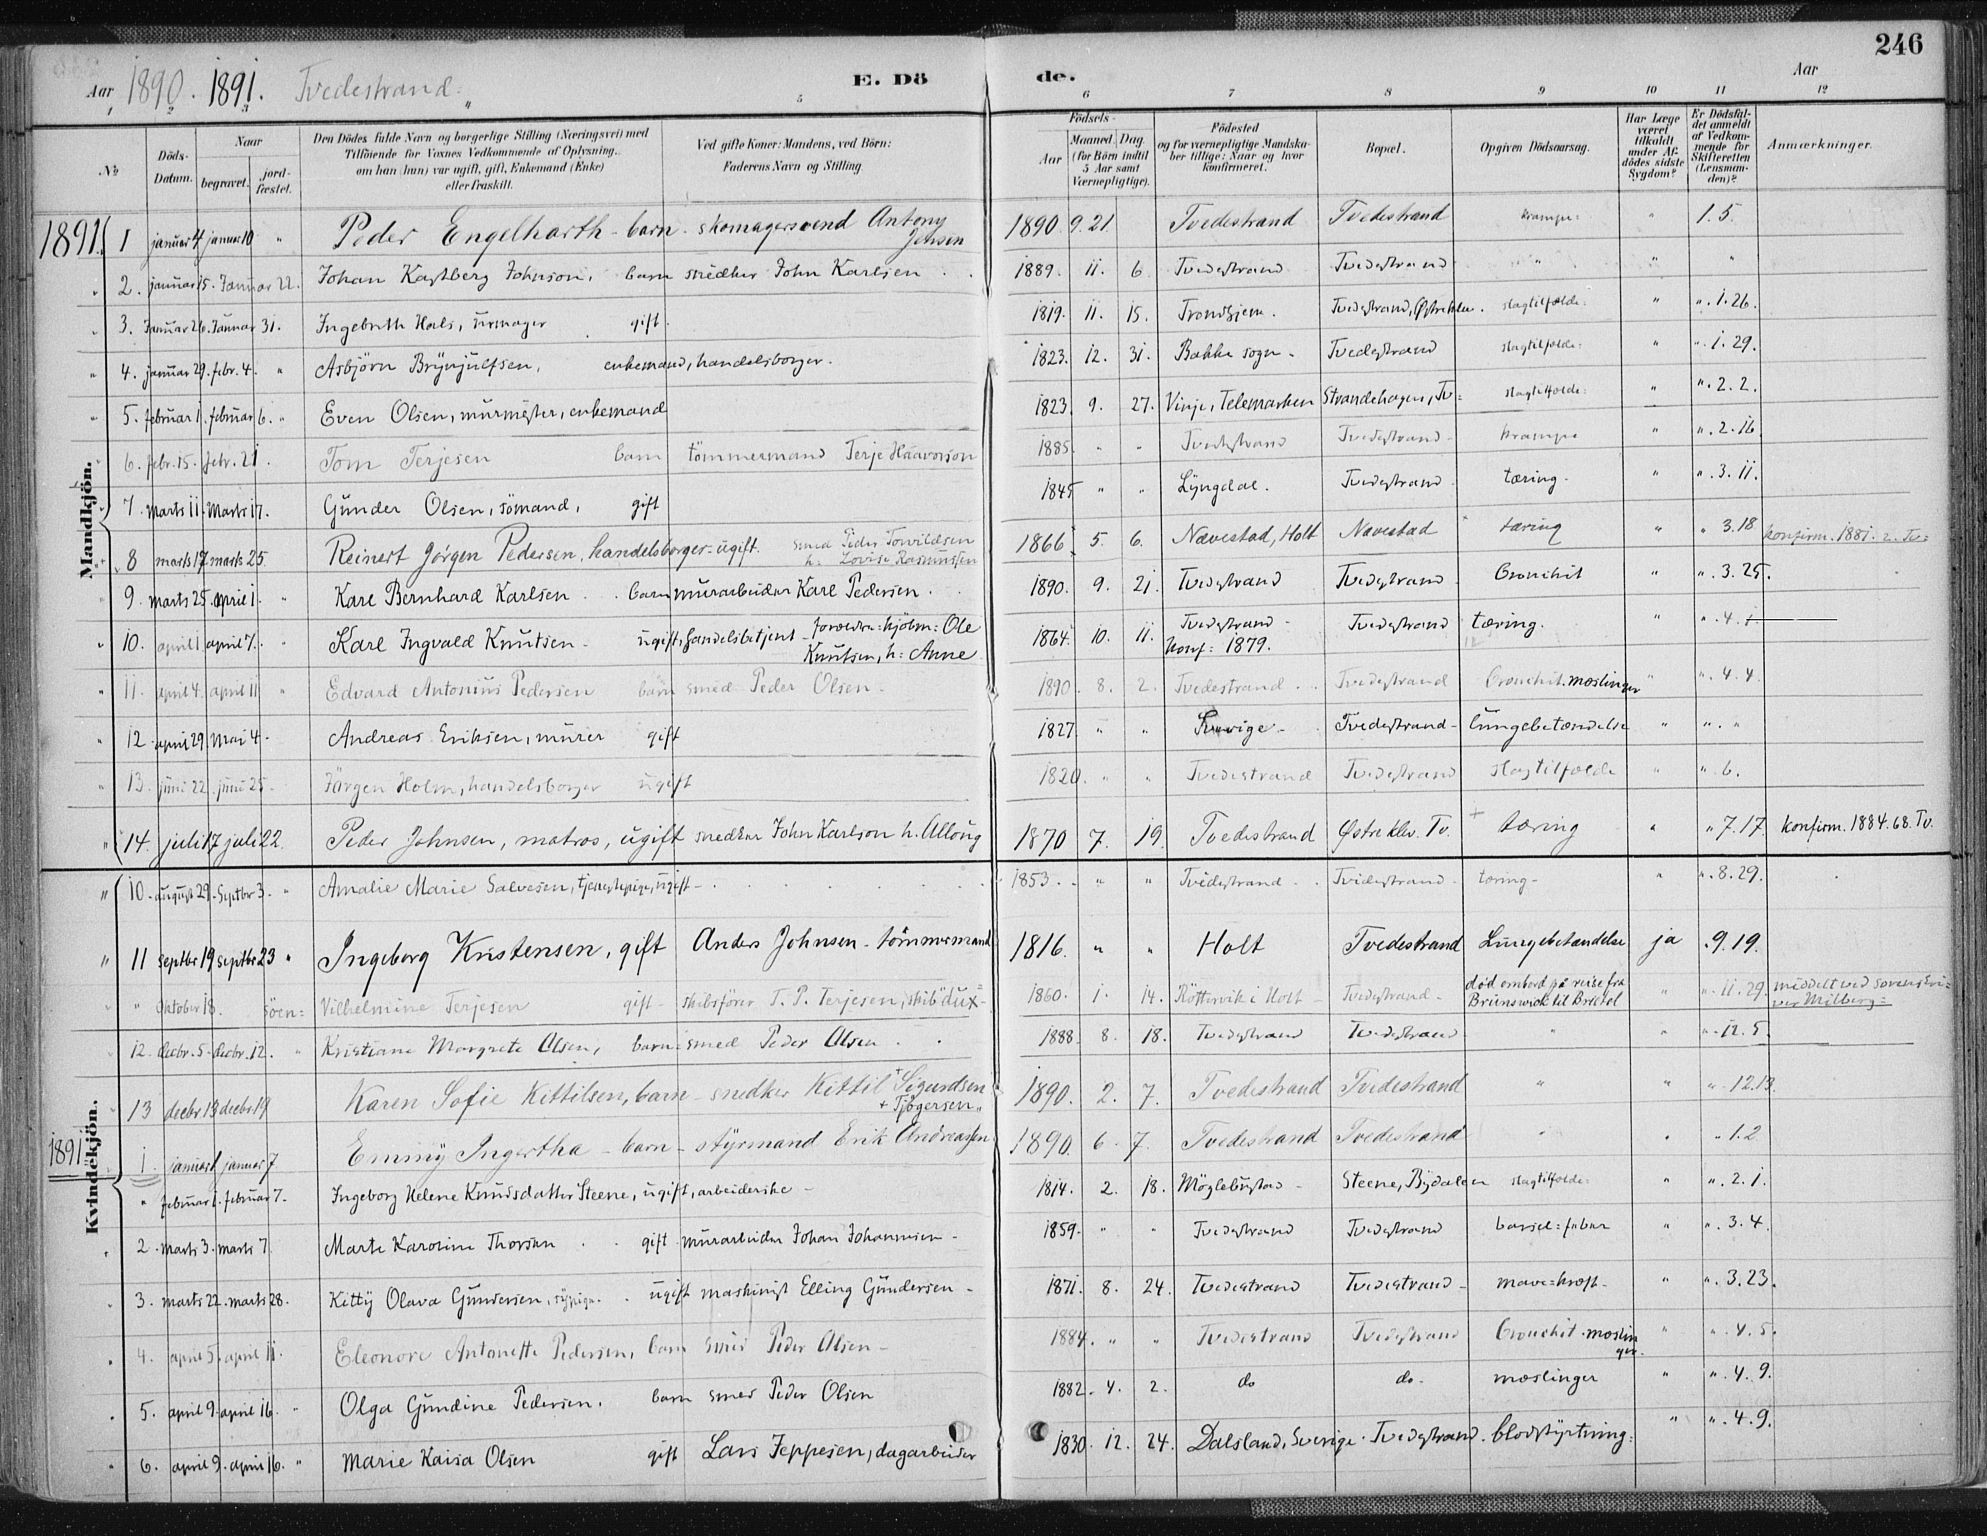 246
Aar 1890. 1891. Tvedestrand. E. Dö de. Aar
1 2 3 5 6 7 8 9 10 11 12
№ Döds-Datum. Naar begravet. jordfæstet. Den Dödes fulde Navn og borgerlige Stilling (Næringsvei) med Tilföiende for Voxnes Vedkommende af Oplysning, om han (hun) var ugift, gift, Enkemand (Enke) eller fraskilt. Ved gifte Koner: Mandens, ved Börn: Faderens Navn og Stilling. Födsels- Aar Maaned. Dag. (for Börn indtil 5 Aar samt Værnepligtige). Födested og for værnepligtige Mandskaber tillige: Naar og hvor konfirmeret. Bopæl. Opgiven Dödsaarsag. Har Læge været tilkaldt under Afdödes sidste Sygdom? Er Dödsfaldet anmeldt af Vedkommende for Skifteretten (Lensmanden)? Anmærkninger.
Mandkjön.
1891. 1 januar 4 januar 10 " Peder Engelharth - barn - skomagersvend Antony Johsen 1890 9. 21. Tvedestrand Tvedestrand krampe: " 1. 5.
" 2. januar 15. Januar 22. Johan Kastberg Johnson, barn snedker John Karlsen 1889. 11. 6. Tvedestrand Tvedestrand " " "
" 3. Januar 26. Januar 31. Ingebrith Hals, urmager gift. 1819. 11. 15. Trondhjem. Tvedestrand, Østreklev. slagtilfælde: " ". 1. 26.
" 4. januar 29. febr. 4. " Asbjörn Brynjulfsen, enkemand, handelsborger. 1823. 12. 31. Bakke sogn. Tvedestrand slagtilfælde: " ". 1. 29.
" 5. februar 1. februar 6. " Even Olsen, murmester, enkemand 1823. 9. 27. Vinje, Telemarken Strandehagen, Tv: slagtilfælde: " ". 2. 2.
" 6. febr. 15. febr. 21. Tom Terjesen barn tömmermand Terje Haavorson 1885. " " Tvedestrand Tvedestrand krampe " ". 2. 16.
" 7. marts 11. Marts 17. Gunder Olsen, sömand, gift 1845 " " Lyngdal. Tvedestrand tæring. " ". 3. 11.
" 8 marts 17 marts 25 Reinert Jörgen Pedersen, handelsborger - ugift. smed Peder Torvildsen h. Lovise Rasmussen 1866. 5. 6. Nævestad, Holt Nævestad tæring " " 3. 18 konfirm. 1881. 2. Tv:
9. marts 25. april 1. " Karl Bernhard Karlsen barn murarbeider Karl Pedersen. 1890. 9. 21. Tvedestrand Tvedestrand Bronchit " ". 3. 25.
" 10. april 1 april 7. " Karl Ingvald Knutsen ugift, handelsbetjent - forældre: hjölm: Ole Knutsen, h: Anne 1864. 10. 11. Tvedestrand - Konf: 1879. Tvedestrand tæring. " ". 4. 1.
" 11. april 4. april 11 " Edvard Antonius Pedersen barn smed Peder Olsen 1890. 8. 2. Tvedestrand Tvedestrand Bronchit. mæslinger " ". 4. 4.
" 12. april 29. Mai 4. Andreas Eriksen, murer gift 1827. " " Sverige - Tvedestrand - lungebetændelse " ". "
" 13. juni 22. juni 25. Jörgen Holm, handelsborger ugift 1820. " " Tvedestrand Tvedestrand slagtilfælde " ". 6.
" 14. juli 17 juli 22. Peder Johnsen, matros, ugift snedker John Karlson h. Alloug 1870 7. 19. Tvedestrand Østre klev. Tv. tæring " " 7. 17 konfirm. 1884. 68. Tv.
Kvindekjön.
" 10. august 29. Septbr 3. " Amalie Marie Salvesen, tjenestepige, ugift 1853. " " Tvedestrand Tvedestrand tæring - " ". 8. 29.
" 11 septbr 19 septbr 23 " Ingeborg Kristensen, gift Anders Johnsen - tömmermand 1816. " " Holt Tvedestrand Lungebetændelse ja . 9. 19.
" " Oktober 18. söen: Vilhelmine Terjesen gift - skibsförer T. P. Terjesen, skib "dux" 1860. 1. 14. Röttevik i Holt - Tvedestrand - död ombord på reise fra Brunswick til Bristol " ". 11. 29. middelt ved sorenskriver Milberg:
12. decbr. 5. decbr. 12. " Kristiane Margrete Olsen, barn smed Peder Olsen 1888. 8. 18. Tvedestrand Tvedestrand " " ". 12. 5.
" 13 decbr 13 decbr 19 Karen Sofie Kittilsen, barn - snedker Kittil Sigurdsen + Tjögersen " 1890. 2. 7. Tvedestrand Tvedestrand " " ". 12. 13.
1891. 1. januar 1 januar 7 Emmy Ingertha - barn - styrmand Erik Andreassen 1890. 6. 7. Tvedestrand Tvedestrand " " " 1. 2
" februar 1. februar 7. Ingeborg Helene Knudsdatter Steene, ugift, arbeiderske - 1814. 2. 18. Möglebustad - Steene, Bydalen slagtilfælde: " ". 2. 1.
" 2. marts 3. marts 7. Marte Karoline Thorsen gift murarbeider Johan Johannesen - 1859. " " Tvedestrand Tvedestrand barsel: feber " ". 3. 4.
" 3. marts 22. marts 28. Kitty Olava Gundersen, sypige. ugift maskinist Elling Gundersen - 1871. 8. 24. Tvedestrand Tvedestrand - mave=kræft - " ". 3. 23.
" 4. april 5. april 11. Eleonore Antonette Pedersen, barn smed Peder Olsen - 1884. " " Tvedestrand Tvedestrand Bronchit. mæslinger. " ". 4. 5.
" 5. april 9. april 16. " Olga Gundine Pedersen. barn smed Peder Olsen 1882. 4. 2. do do. mæslinger " ". 4. 9.
" 6. april 9. april 16. " Marie Kaisa Olsen gift Lars Jeppesen, dagarbeider 1830. 12. 24. Dalsland, Sverige. Tvedestrand. blodstyrtning: " ". 4. 9.